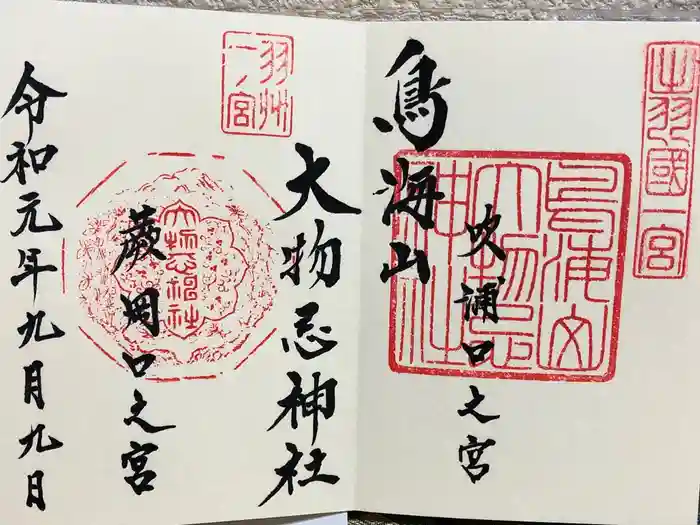 出羽國一宮
鳥海山
吹浦口之宮
大物忌神社
羽州
一ノ宮
蕨岡口之宮
大物忌神社
令和元年九月九日